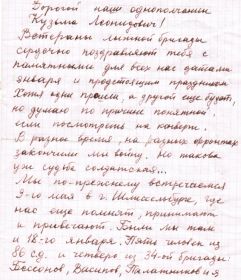 Дорогой наш однополчанин
Кузьма Леонидович!
Ветераны лыжной бригады
сердечно поздравляют тебя с
памятными для всех нас датами
января и предстоящим праздником
Хотя один прошел, а другой еще будет,
но думаю по причине понятной,
если посмотреть на конверте.
В разное время, на разных фронтах
закончили мы войну. Но такова
уж судьба солдатская...
Мы по-прежнему встречаемся
9-го мая в г. Шлиссельбурге, где
нас еще помнят, принимают
и привечают. Были мы там
и 18-го января. Пять человек из
80 с.д. и четверо из 34-ой бригады:
Бессонов, Васипов, Палатников и я